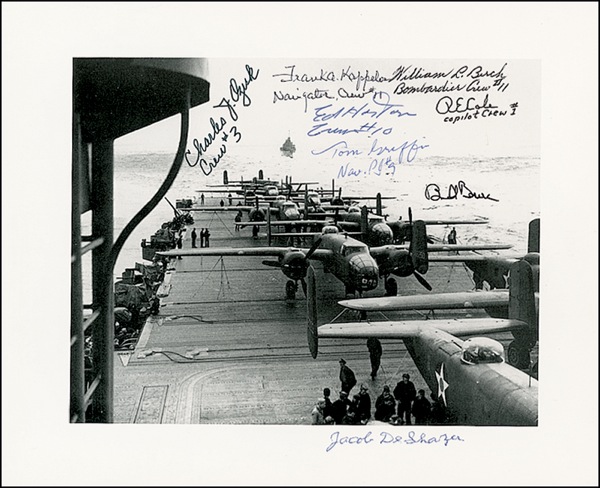 Charles J. Ozuk
Crew #3
Frank A. Kappeler
Navigator, Crew #11
William L. Birch
Bombardier Crew #11
R E Cole
copilot Crew #1
Ed Horton
Crew #10
Tom Griffin
Nav. Pl #9
Bill Bower
Jacob DeShazer